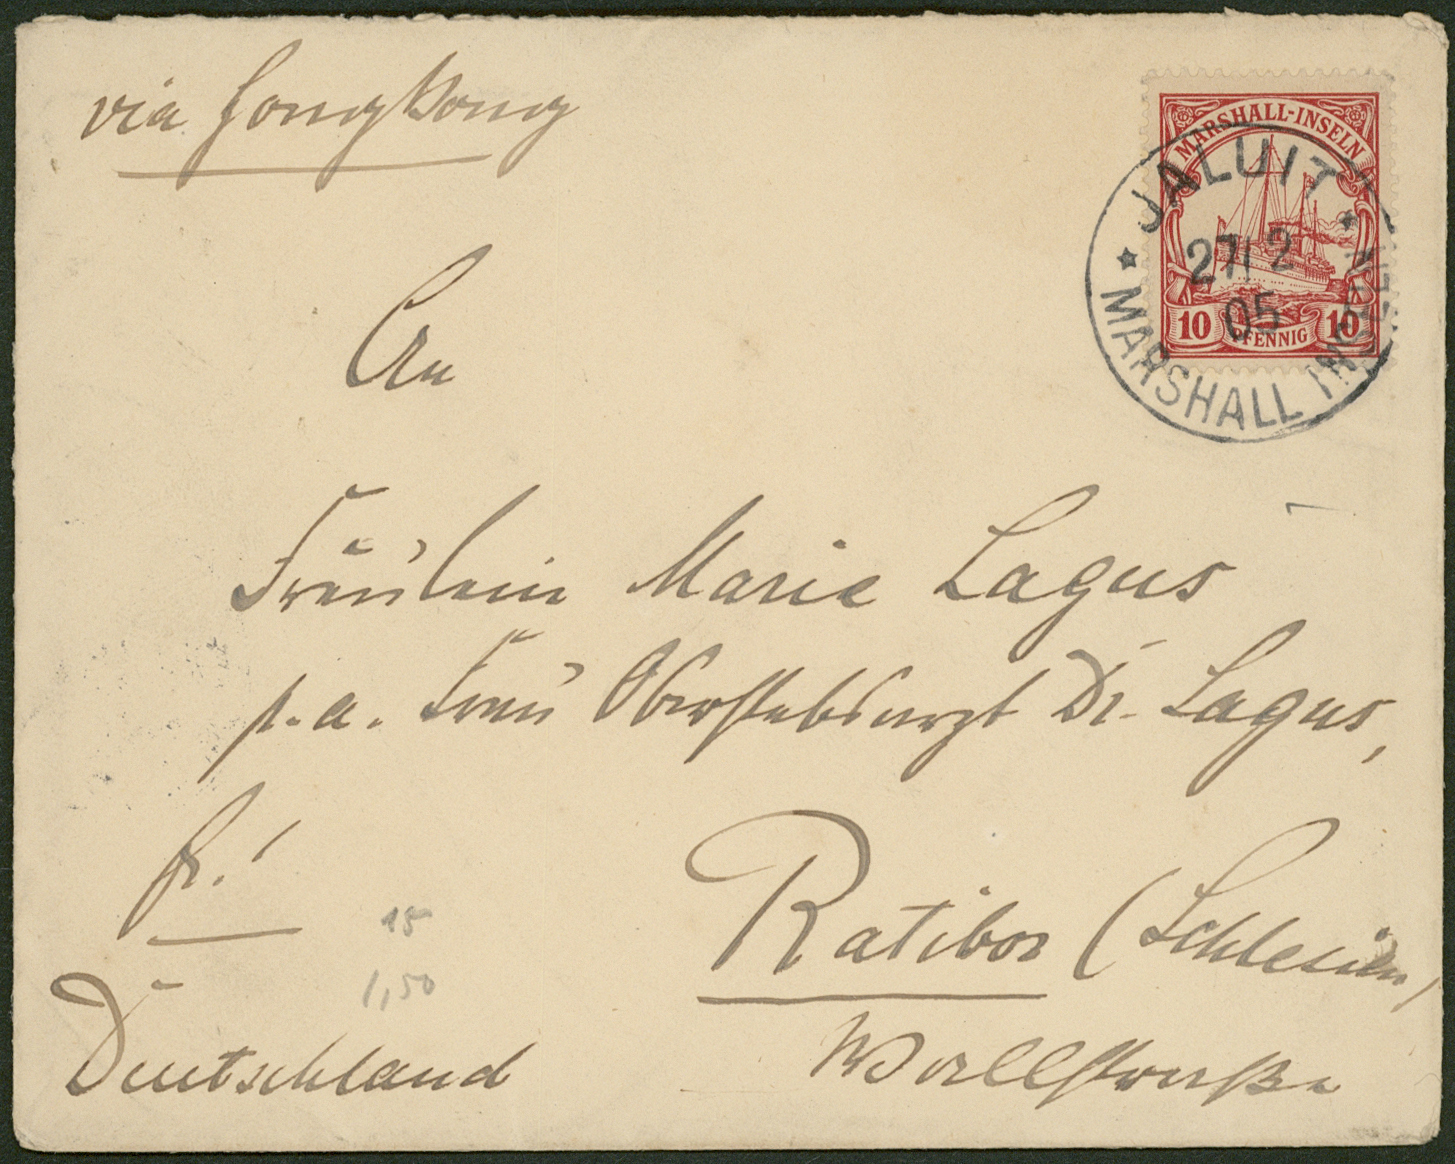 via Hongkong
MARSHALL-INSELN
10 PFENNIG 10
JALUIT
27/2
05
MARSHALL INSELN
An
Fräulein Marie Lagus
p. a. Frau Oberstabsarzt Dr. Lagus,
fr!
15
1,50
Ratibor (Schlesien)
Deutschland
Wallstraße